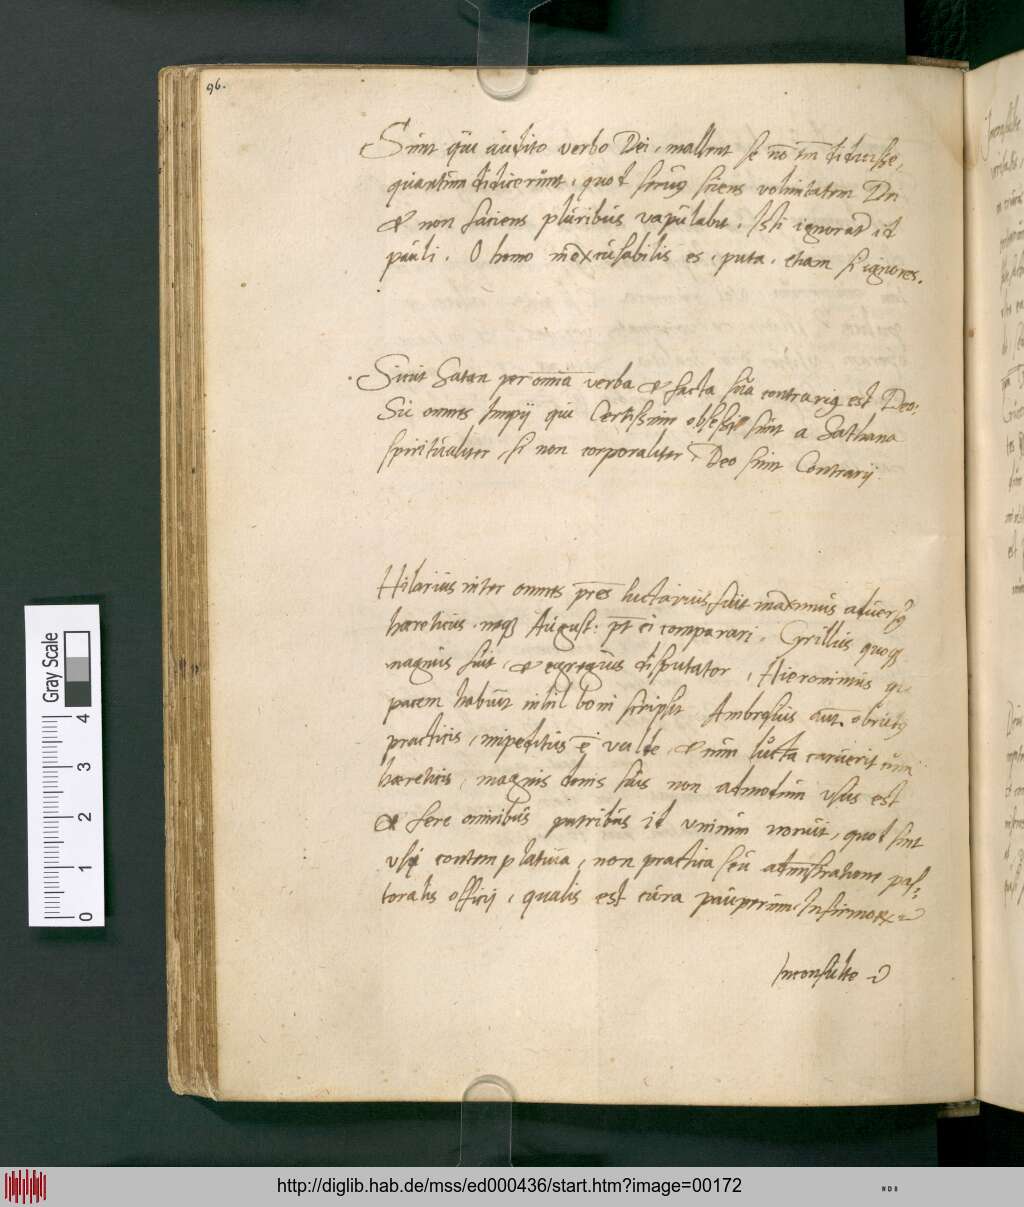 96.
Sunt qui audito verbo Dei, mallent se nō tm̄ didicisse,
quantum didicerunt, quod seruꝰ sciens volūntatem Dni
& non faciens pluribus vapulabit. Isti ignorāt id
pauli. O homo inexcusabilis es, puta, etiam si ignores.
Sicut Satan per omnia verba & facta sua contrariꝰ est Deo:
Sic omnes Impij qui Certissime obsessi sunt a Sathana
spiritualiter, si non corporaliter, Deo sunt Contrarij
Hilarius inter omnes pres luctarius fuit maximus aduersꝰ
haereticus neqꝫ August: pt ei comparari. Cyrillus quoqꝫ
magnus fuit, & egregius disputator, Hieronimus
pacem habuit nihil boni scripsit Ambrosius aut. obrutꝰ
practicis, impeditus ē valde, & cum lucta caruerit cum
haereticis, magnis donis suis non admodum vsus est
& fere omnibus patribus id vnicum nocuit, quod sint
vsi contemplatiua, non practica seu administratione pas:
toralis officij, qualis est cura pauperum, Infirmorꝝ
Inconsulto
Gray Scale
4
3
2
1
0
http://diglib.hab.de/mss/ed000436/start.htm?image=00172